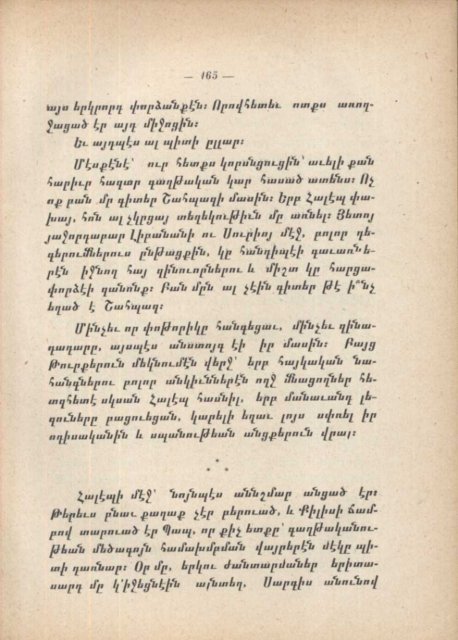 — 165 —
այս երկրորդ փորձանքէն։ Որովհետեւ ոտքս առող-
ջացած էր այդ միջոցին։
Եւ այդպէս ալ պիտի ըլլար։
Մէսքէնէ՝ ուր հետքս կորսնցուցին՝ աւելի քան
հարիւր հազար գաղթական կար հասած ատենս։ Ոչ
ոք բան մը գիտեր Շահպազի մասին։ Երբ Հալէպ փա-
խայ, հոն ալ չկրցայ տեղեկութիւն մը առնել։ Յետոյ
յաջորդաբար Լիբանանի ու Սուրիոյ մէջ, բոլոր դե-
գերումներուս ընթացքին, կը հանդիպէի գաւառնե-
րէն իջնող հայ զինուորներու և միշտ կը հարցա-
փորձէի զանոնք։ Բան մըն ալ չէին գիտեր թէ ի՞նչ
եղած է Շահպազ։
Մինչեւ որ փոթորիկը հանդեցաւ, մինչեւ զինա-
դադարը, այսպէս անստոյգ էի իր մասին։ Բայց
Թուրքերուն մեկնումէն վերջ՝ երբ հայկական նա-
հանգներու բոլոր անկիւններէն ողջ մնացողներ հե-
տզհետէ սկսան Հալէպ հասնիլ, երբ մանաւանդ լե-
զուները բացուեցան, կարելի եղաւ լոյս սփռել իր
ոդիսականին և սպանութեան անցքերուն վրայ։
* * *
Հալէպի մէջ՝ նոյնպէս աննշմար անցած էր։
Թերեւս բնաւ քաղաք չէր բերուած, և Քիլիսի ճամ-
բով տարուած էր Պապ, որ քիչ ետքը՝ գաղթականու-
թեան մեծագոյն համախմբման վայրերէն մէկը պի-
տի դառնար։ Օր մը, երկու ժանտարմաներ երիտա-
սարդ մը կ'իջեցնէին այնտեղ, Սարգիս անունով